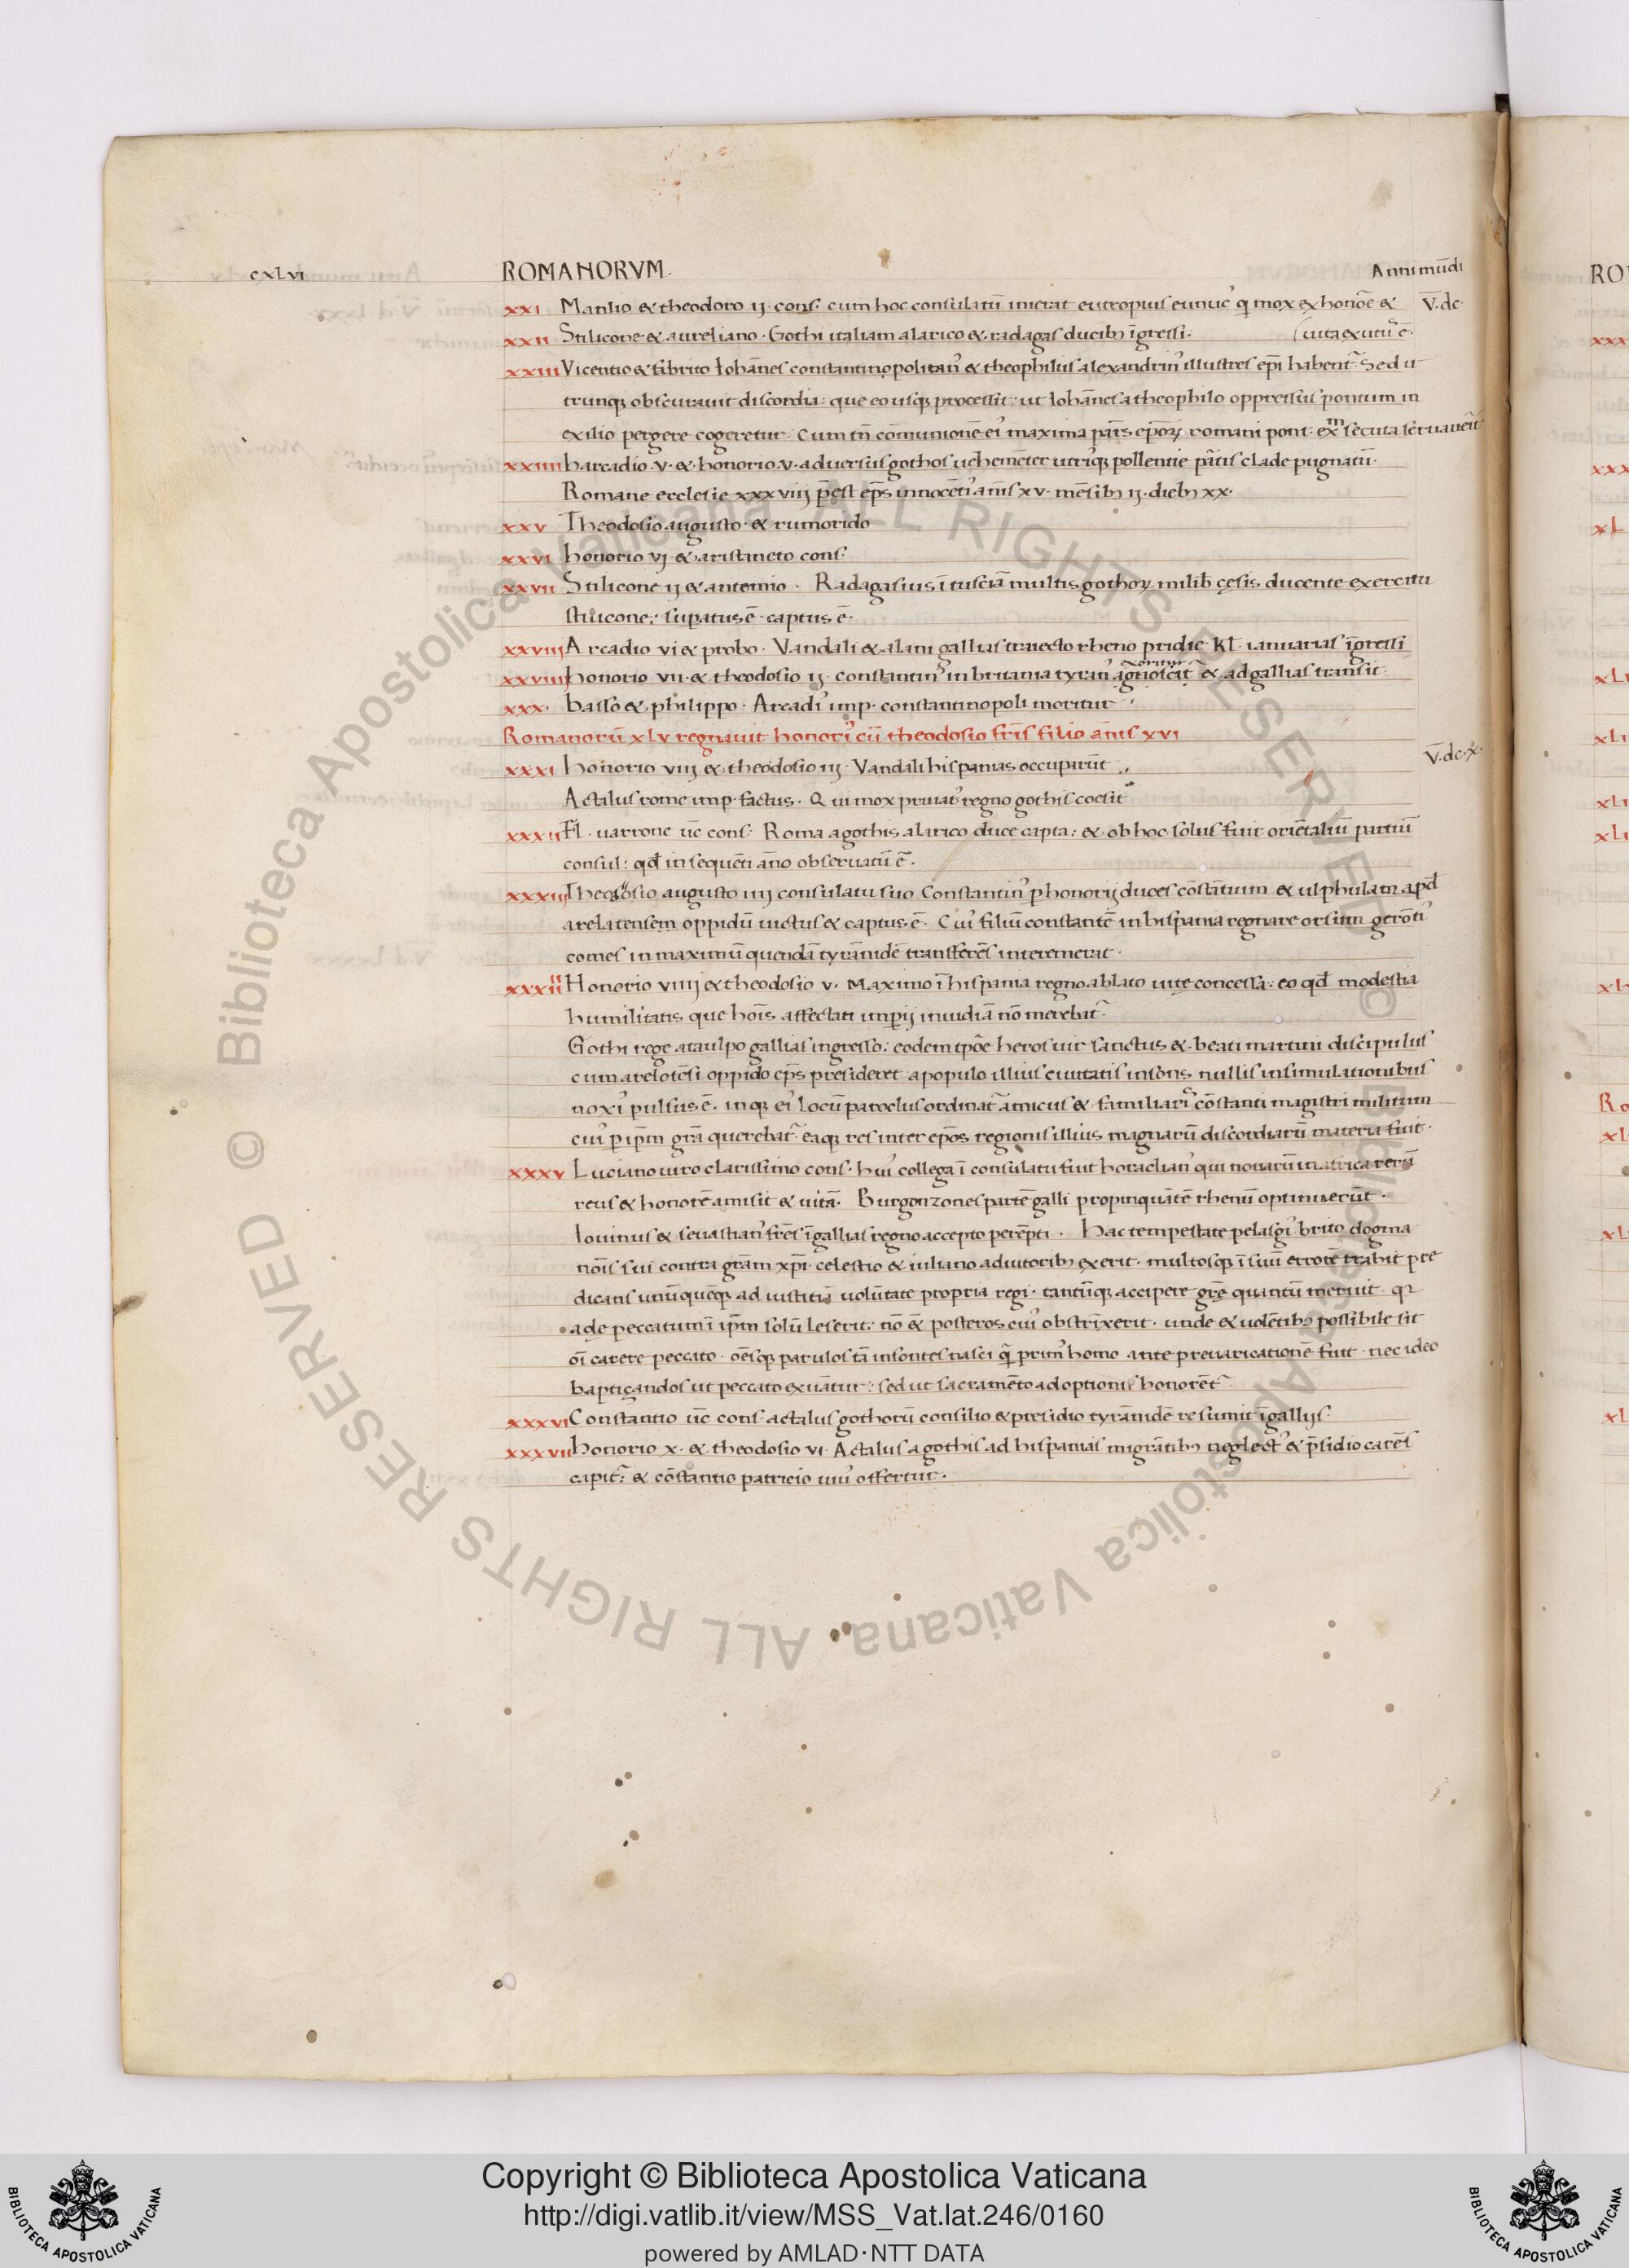 cxLvi
ROMANORVM.
Anni mūdi
xxi Manlio & theodoro ij cons· cum hoc consulatū inierat eutropius eunuc' q mox ex honōe &
V̄·dc·
xxii Stilicone & aureliano · Gothi italiam alarico & radagas ducib; īgressi·
uita exut' ē·
xxiii Vicentio & fabrito Iohānes constantinopolitan' & theophilus alexandrin' illustres ep̄i habent' Sed u
trunq; obscurauit discordia: que eo usq; processit· ut Iohānes a theophilo oppressus pontum in
exilio pergere cogeretur· Cum tn̄ cōmunionē ei' maxima pars ep̄oꝝ romani pont· exm̄ secuta seruauerūt
xxiiii harcadio ·v· & honorio ·v· aduersus gothos uehemēter utriq; pollentie p̄tis clade pugnatū·
Romane ecclesie xxxviij p̄est ep̄s innocēti' ānis xv· mēsib; ij· dieb; xx·
xxv Theodosio augusto· & rumorido
xxvi honorio vj & aristaneto cons·
xxvii Stilicone ij & antemio · Radagasius ī tusciā multis gothoꝝ milib̄ cęsis ducente exercitu
stilicone: supatus ē· captus ē·
xxviii Arcadio vi & probo· Vandali & alani gallias traiecto rheno pridie kl̄ ianuarias īgressi
exoritur
xxviiii honorio vii & theodosio ij· constantin' in britania tyran' agnoscit & ad gallias transit
xxx· basso & philippo· Arcadi' imp· constantinopoli moritur
Romanorū xlv regnauit honori' cū theodosio fr̄is filio ānis xvi
xxxi honorio viij & theodosio iij· Vandali hispanias occuparūt
V̄·dc·x·
Actalus rome imp· factus· Qui mox priuat' regno gothis coesit
xxxii Fl̄· uarrone ūc cons· Roma a gothis alarico duce capta: & ob hoc solus fuit oriētaliū partiū
consul: qd̄ in sequēti āno obseruatū ē·
xxxiii Theodosio augusto iiij consulatu suo Constantin' p honorij duces cōstātium & ulphulam apd̄
arelatensem oppidū uictus & captus ē· Cui' filiū constantē in hispania regnare orsum gerōti'
comes in maximū quendā tyrānidē transferēs interemerat·
xxxiiii Honorio viiij & theodosio v· Maximo ī hispania regno ablato uitę concessa: eo qd̄ modestia
humilitatis que hōis affectati imperij inuidiā nō merebat'
Gothi rege ataulpo gallias ingresso: eodem tp̄ōe heros uir sanctus & beati martini discipulus
cum arelotēsi oppido ep̄s presideret a populo illius ciuitatis insōns nullis insimulationibus
noxi' pulsus ē· inq; ei' locū patroclus ordinat' amicus & familiaris cōstanti magistri militum
cui' p ip̄m gr̄a querebat' eaq; res inter ep̄os regionis illius magnarū discordiarū materia fuit·
xxxv Luciano uiro clarissimo cons· hui' collega ī consulatu fuit horaclian' qui nouarū in africa rerū
reus & honorē amisit & uitā· Burgonzones partē galli propinquātē rhenū optinuerūt·
Iouinus & seuastian' fr̄es ī gallias regno accepto perēpti· Hac tempestate pelasgi' brito dogma
nōis sui contra gr̄am xp̄i· celestio & iuliano adiutorib; exerit· multosq; ī suū errorē trahit pre
dicans unūquēq; ad iustitiā uolūtate propria regi· tantūq; accipere gr̄ę quantū meruit· q2
ade peccatum ī ip̄m solū leserit: nō & posteros cui' obstrīxerit· unde & uolētib; possibile sit
oī carere peccato· oēsq; paruulos tā insontes nasci q̄ prim' homo ante preuaricationē fuit· nec ideo
bapticandos ut peccato exuātur: sed ut sacramēto adoptionis honorēt'
xxxvi Constantio ūc cons· actalus gothorū consilio & presidio tyrānidē resumit ī gallijs·
xxxvii honorio x· & theodosio vi· Actalus a gothis ad hispanias migrātib; neglect' & p̄sidio carēs
capit': & cōstantio patricio uiu' offertur·
Copyright © Biblioteca Apostolica Vaticana
http://digi.vatlib.it/view/MSS_Vat.lat.246/0160
powered by AMLAD·NTT DATA